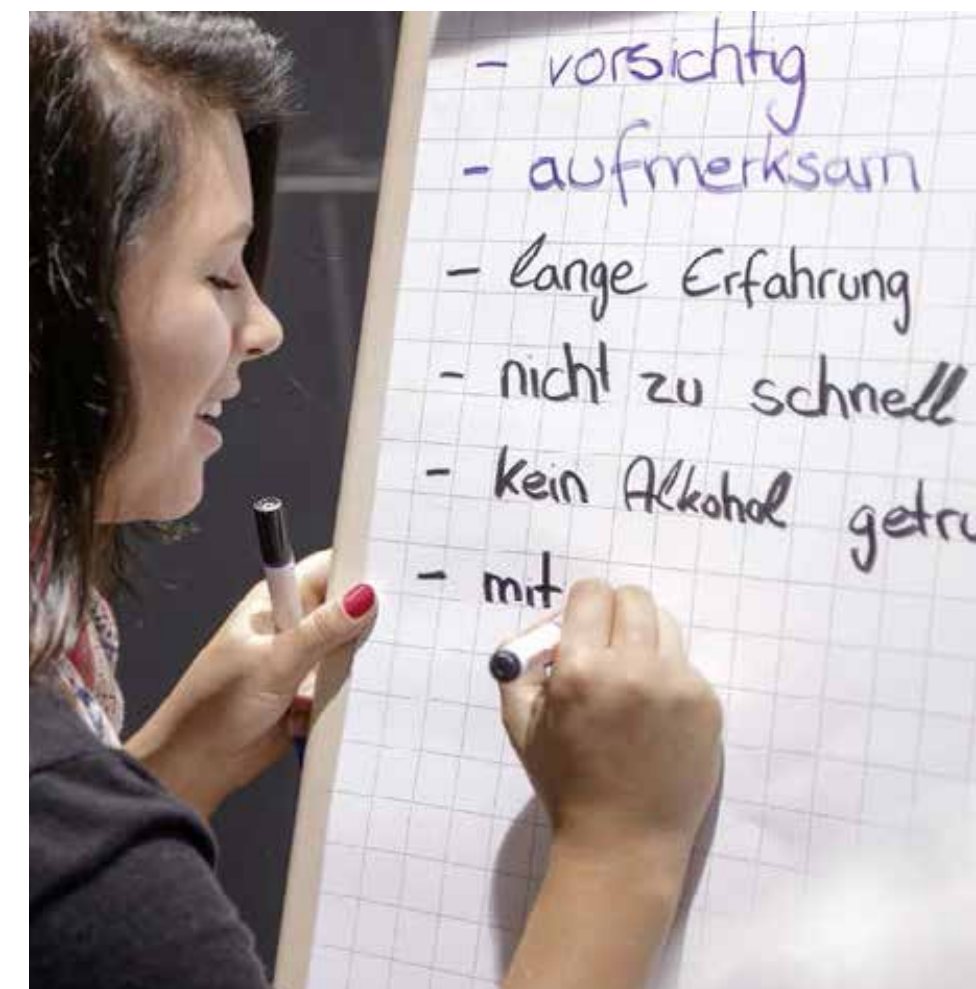 - vorsichtig
- aufmerksam
- lange Erfahrung
- nicht zu schnell
- kein Alkohol getru
- mit